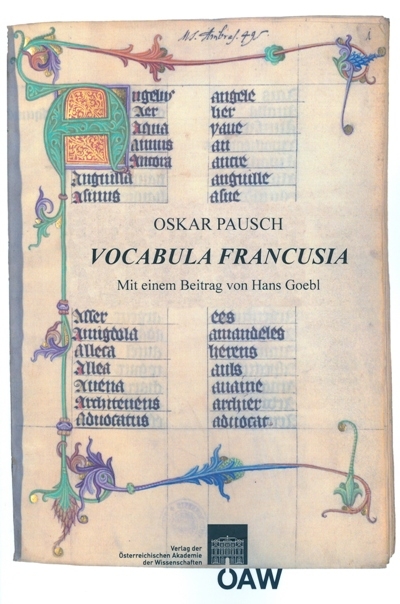 Ms. Ambras. 495
1
Angelus angele
Aer her
Aqua yaue
annus an
Ancora ancre
Anguilla anguille
Asinus asne
OSKAR PAUSCH
VOCABULA FRANCUSIA
Mit einem Beitrag von Hans Goebl
Asser ees
Amigdola amandeles
alleca herens
Allea auls
Auena auaine
Architenens archier
aduocatus aduocat
Verlag der
Österreichischen Akademie
der Wissenschaften
ÖAW